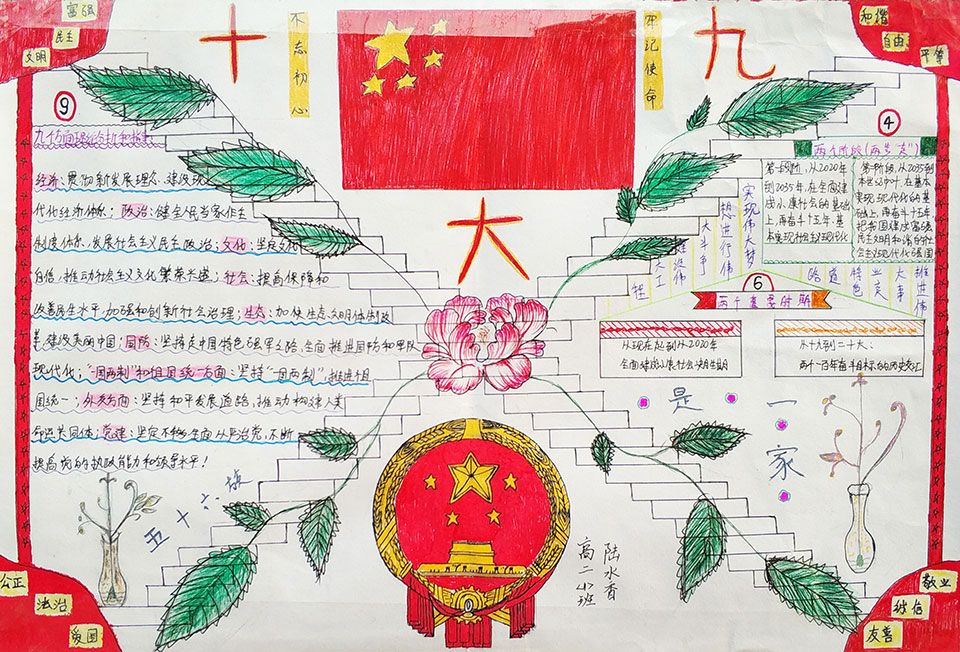 富强
民主
文明
十
不忘初心
牢记使命
九
和谐
自由
平等
大
⑨
经济：贯彻新发展理念、建设现
代化经济体系；政治：健全人民当家作主
制度体系，发展社会主义民主政治；文化：坚定文化
自信，推动社会主义文化繁荣兴盛；社会：提高保障和
改善民生水平，加强和创新社会治理；生态：加快生态文明体制改
革，建设美丽中国；国防：坚持走中国特色强军之路、全面推进国防和军队
现代化；“一国两制”和祖国统一方面：坚持“一国两制”，推进祖
国统一；外交方面：坚持和平发展道路，推动构建人类
命运共同体；党建：坚定不移全面从严治党，不断
提高党的执政能力和领导水平！
④
两个阶段（两步“走”）
第一阶段，从2020年
到2035年，在全面建
成小康社会的基础
上，再奋斗十五年，基
本实现社会主义现代化
第二阶段，从2035到
本世纪中叶，在基本
实现现代化的基
础上，再奋斗十五年，
把我国建成富强
民主文明和谐的社
会主义现代化强国
实现伟大梦
想进行伟
大斗争
建设伟
大工
程
推进伟
大事
业
特色
道路
⑥
两个重要时期
从现在起到从2020年
全面建成小康社会决胜期
从十九到二十大：
两个一百年奋斗目标的历史交汇
五十六
是一家
陆水香
高二小班
公正
法治
爱国
敬业
诚信
友善